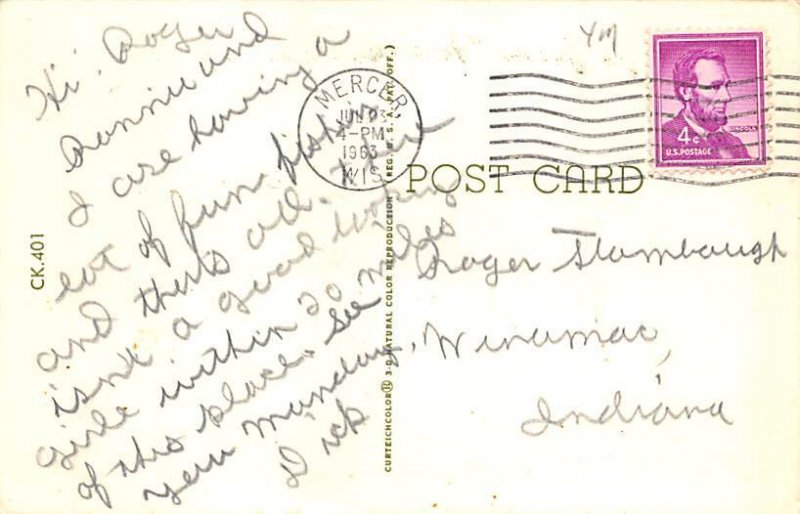 Hi Roger
Ronnie and
I are having a
lot of fun fishin
and thats all. There
isnt a good looking
girl within 20 miles
of this place. See
you Munday.
Dick
CK.401
CURTEICHCOLOR® 3-D NATURAL COLOR REPRODUCTION (REG. U.S.A. PAT. OFF.)
MERCER
JUL 23
4-PM
1963
WIS.
POST CARD
YM
4c
LINCOLN
U.S. POSTAGE
Roger Stambaugh
Winamac,
Indiana